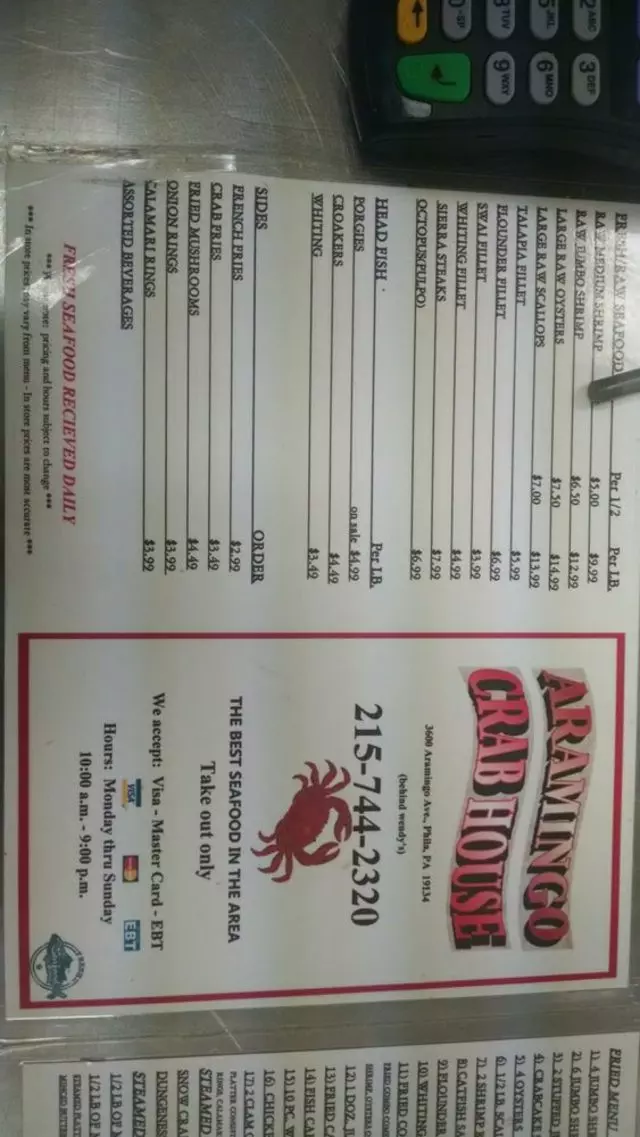 FRESH/RAW SEAFOOD Per 1/2 Per LB.
RAW MEDIUM SHRIMP $5.00 $9.99
RAW JUMBO SHRIMP $6.50 $12.99
LARGE RAW OYSTERS $7.50 $14.99
LARGE RAW SCALLOPS $7.00 $13.99
TALAPIA FILLET $5.99
FLOUNDER FILLET $6.99
SWAI FILLET $3.99
WHITING FILLET $4.99
SIERRA STEAKS $7.99
OCTOPUS(PULPO) $6.99
HEAD FISH Per LB.
PORGIES on sale $4.99
CROAKERS $4.49
WHITING $3.49
SIDES ORDER
FRENCH FRIES $2.99
CRAB FRIES $3.49
FRIED MUSHROOMS $4.49
ONION RINGS $3.99
CALAMARI RINGS $3.99
ASSORTED BEVERAGES
FRESH SEAFOOD RECIEVED DAILY
pricing and hours subject to change ***
*** In store prices may vary from menu - In store prices are most accurate ***
ARAMINGO
CRAB HOUSE
3600 Aramingo Ave., Phila, PA 19134
(behind wendy's)
215-744-2320
THE BEST SEAFOOD IN THE AREA
Take out only
We accept: Visa - Master Card - EBT
VISA EBT
Hours: Monday thru Sunday
10:00 a.m. - 9:00 p.m.
FRIED MENU
1) 4 JUMBO
2) 6 JUMBO
3) 2 STUFFED
4) CRABCAKE
5) 4 OYSTERS
6) 1/2 LB.
7) 2 SHRIMP
8) CATFISH
9) FLOUNDER
10) WHITING
11) FRIED
12) 1 DOZ.
13) FRIED
14) FISH
15) 10 PC.
16)
17) 2 CLAM
STEAMED
SNOW
DUNGENESS
STEAMED
1/2 LB OF
1/2 LB OF
2 ABC
3 DEF
5 JKL
6 MNO
8 TUV
9 WXY
0